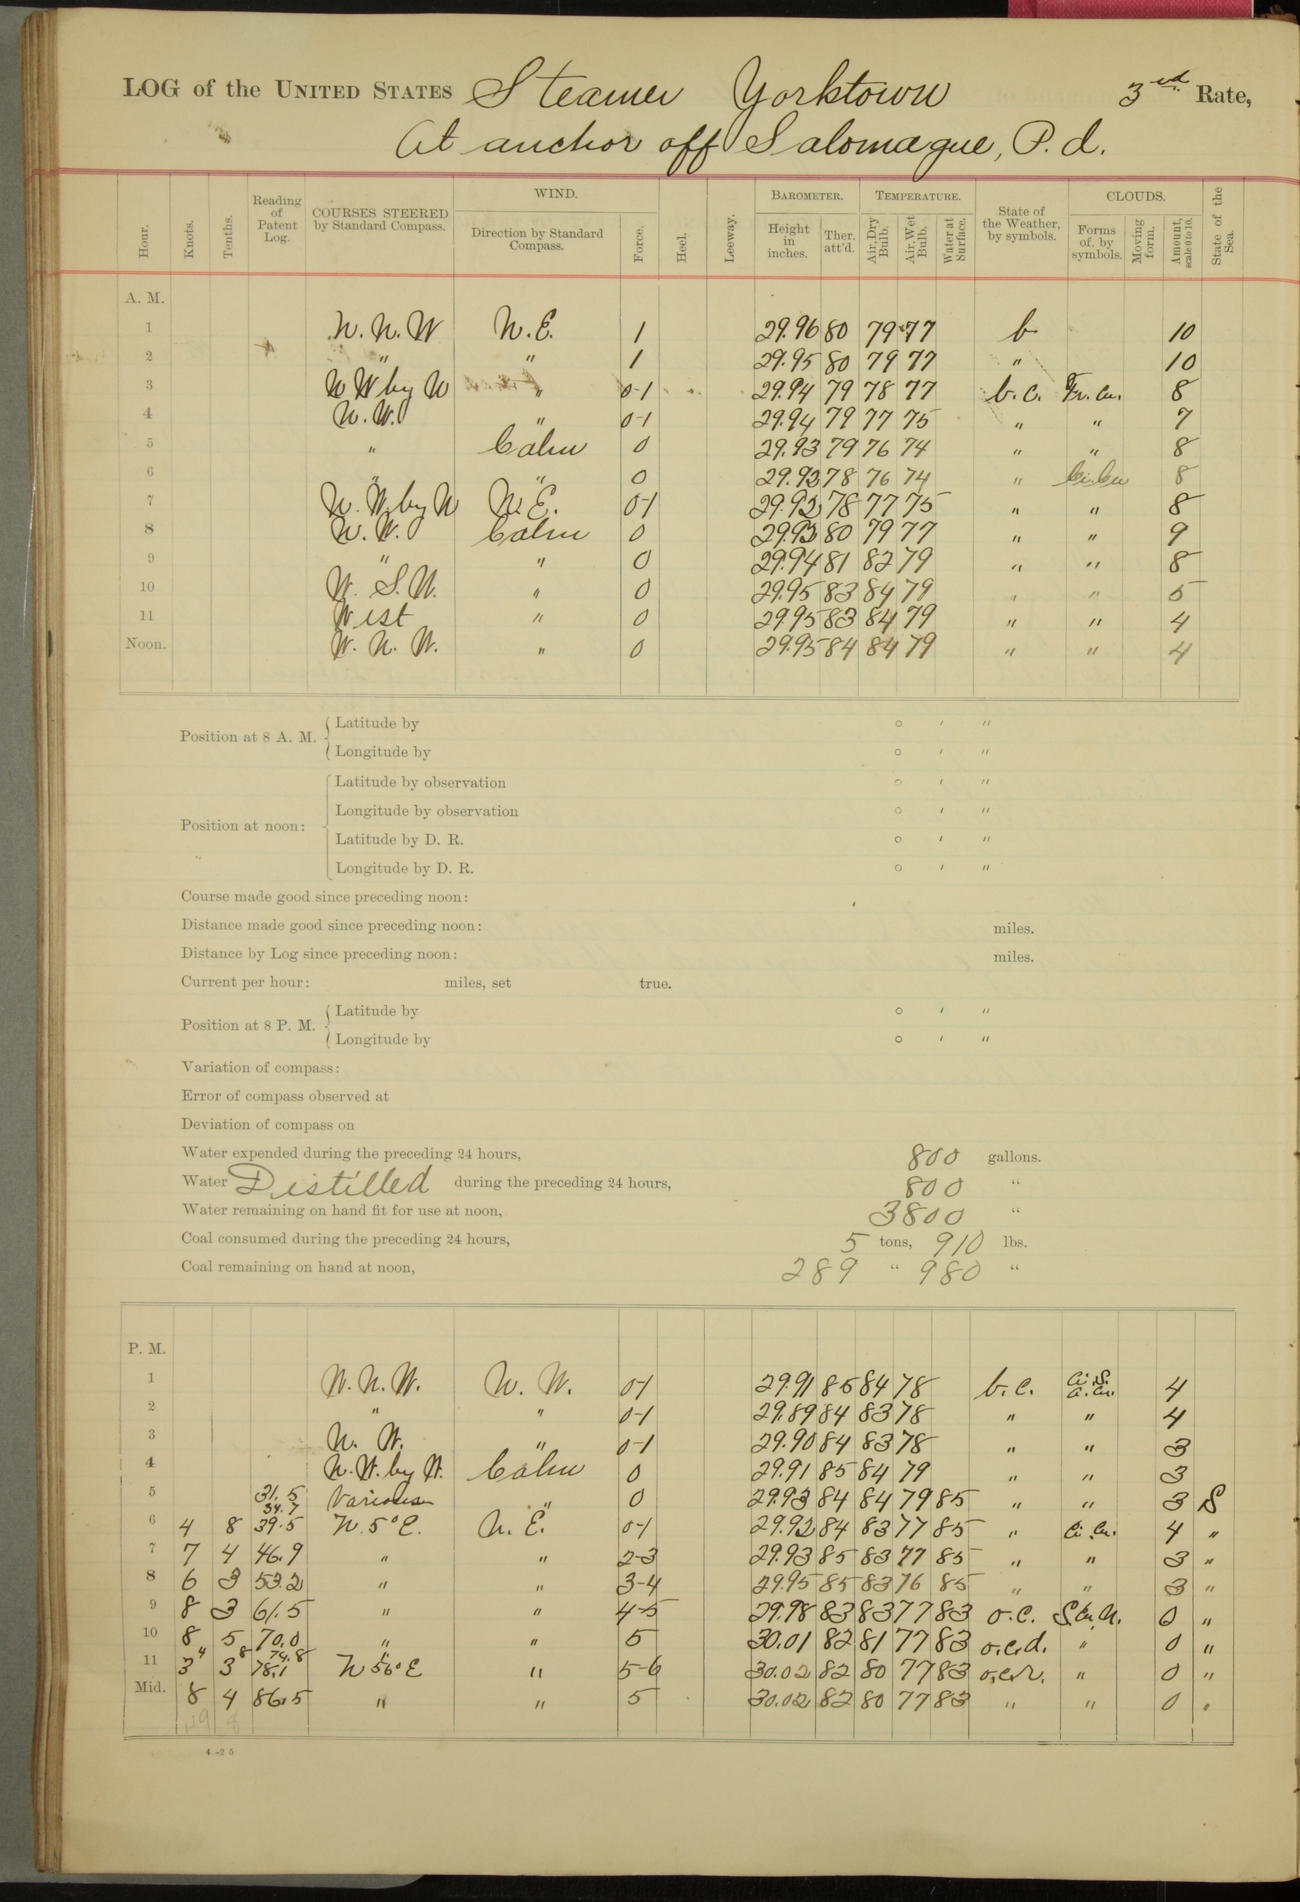 LOG of the UNITED STATES Steamer Yorktown 3rd Rate,
At anchor off Salomague, P. d.
Hour. Knots. Tenths. Reading of Patent Log. COURSES STEERED by Standard Compass. WIND. Direction by Standard Compass. Force. Heel. Leeway. BAROMETER. Height in inches. Ther. att'd. TEMPERATURE. Air, Dry Bulb. Air, Wet Bulb. Water at Surface. State of the Weather, by symbols. CLOUDS. Forms of, by symbols. Moving form. Amount, scale 0 to 10. State of the Sea.
A. M.
1 N. N. W N. E. 1 29.96 80 79 77 b 10
2 " " 1 29.95 80 79 77 " 10
3 N W by N " 0-1 29.94 79 78 77 b.c. 8
4 N. W. " 0-1 29.94 79 77 75 " " 7
5 " Calm 0 29.93 79 76 74 " " 8
6 " " 0 29.93 78 76 74 " Ci.Cu 8
7 N. W. by N N. E. 0-1 29.93 78 77 75 " " 8
8 N. W. Calm 0 29.93 80 79 77 " " 9
9 " " 0 29.94 81 82 79 " " 8
10 W. S. W. " 0 29.95 83 84 79 " " 5
11 West " 0 29.95 83 84 79 " " 4
Noon. W. N. W. " 0 29.95 84 84 79 " " 4
Position at 8 A. M. Latitude by ° ' "
Longitude by ° ' "
Position at noon: Latitude by observation ° ' "
Longitude by observation ° ' "
Latitude by D. R. ° ' "
Longitude by D. R. ° ' "
Course made good since preceding noon:
Distance made good since preceding noon: miles.
Distance by Log since preceding noon: miles.
Current per hour: miles, set true.
Position at 8 P. M. Latitude by ° ' "
Longitude by ° ' "
Variation of compass:
Error of compass observed at
Deviation of compass on
Water expended during the preceding 24 hours, 800 gallons.
Water Distilled during the preceding 24 hours, 800 "
Water remaining on hand fit for use at noon, 3800 "
Coal consumed during the preceding 24 hours, 5 tons, 910 lbs.
Coal remaining on hand at noon, 289 " 980 "
P. M.
1 W. N. W. N. W. 0-1 29.91 85 84 78 b.c. Ci.S. Ci.Cu. 4
2 " " 0-1 29.89 84 83 78 " " 4
3 N. W. " 0-1 29.90 84 83 78 " " 3
4 N. W. by W. Calm 0 29.91 85 84 79 " " 3
5 31.5 34.7 Various " 0 29.93 84 84 79 85 " " 3 S
6 4 8 39.5 N. 5° E. N. E. 0-1 29.92 84 83 77 85 " Ci.Cu. 4 "
7 7 4 46.9 " " 2-3 29.93 85 83 77 85 " " 3 "
8 6 3 53.2 " " 3-4 29.95 85 83 76 85 " " 3 "
9 8 3 61.5 " " 4-5 29.98 83 83 77 83 o.c. 0 "
10 8 5 70.0 " " 5 30.01 82 81 77 83 o.c.d. " 0 "
11 3 4 3 8 74.8 78.1 N 56° E " 5-6 30.02 82 80 77 83 o.c.r. " 0 "
Mid. 8 4 86.5 " " 5 30.02 82 80 77 83 " " 0 "
49 8
4—25